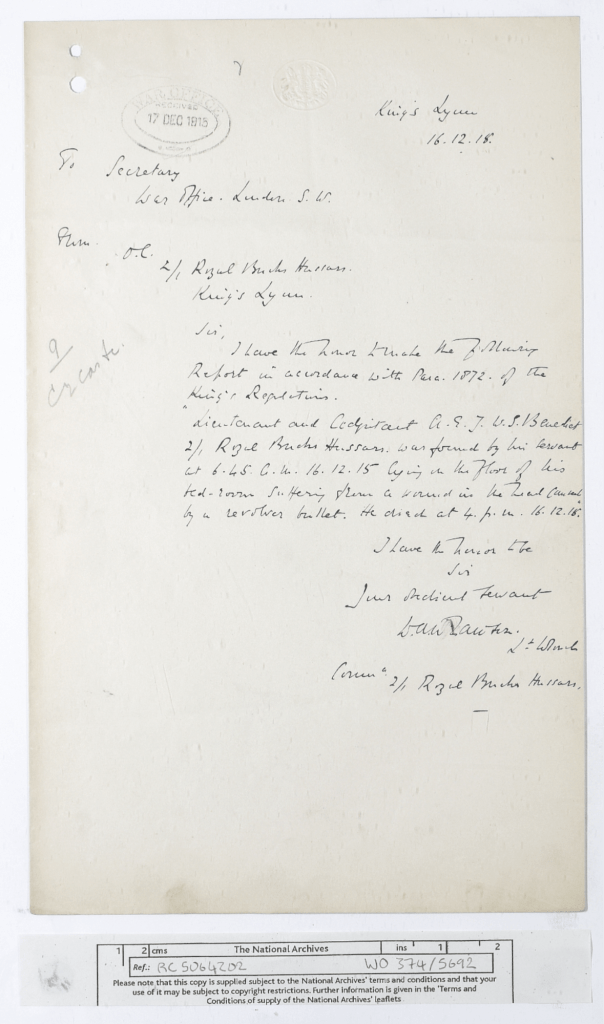 WAR OFFICE
RECEIVED
17 DEC 1915
King's Lynn
16.12.15.
To Secretary
War Office. London S.W.
From. O.C.
2/1 Royal Bucks Hussars.
King's Lynn.
9
Sir,
I have the honor to make the following
Report in accordance with Para. 1872. of the
King's Regulations.
"Lieutenant and Adjutant A.E.J.W.S. Benedict
2/1 Royal Bucks Hussars. was found by his servant
at 6.45 a.m. 16.12.15 lying on the floor of his
bed-room suffering from a wound in the head caused
by a revolver bullet. He died at 4. p.m. 16.12.15."
I have the honor to be
Sir
Your obedient servant
Lt
Comm
2/1 Royal Bucks Hussars.
1 2 cms The National Archives ins 1 2
Ref.: RC 5064202 WO 374/5692
Please note that this copy is supplied subject to the National Archives' terms and conditions and that your
use of it may be subject to copyright restrictions. Further information is given in the 'Terms and
Conditions of supply of the National Archives' leaflets